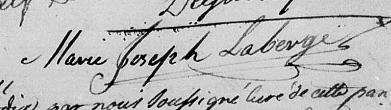 Marie Joseph Laberge
par nous soussigné curé de cette par